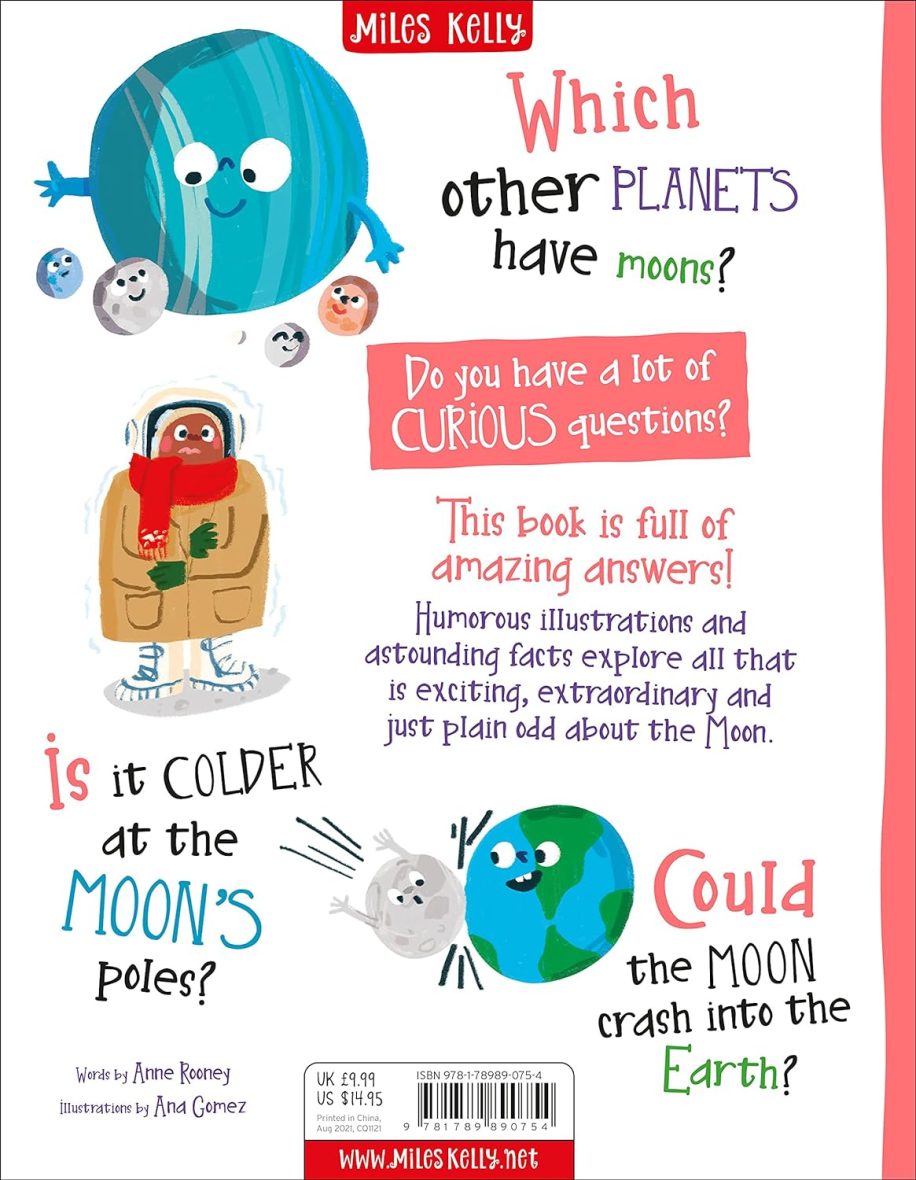 Miles Kelly
Which
other PLANETS
have moons?
Do you have a lot of
CURIOUS questions?
This book is full of
amazing answers!
Humorous illustrations and
astounding facts explore all that
is exciting, extraordinary and
just plain odd about the Moon.
Is it COLDER
at the
MOON'S
poles?
Could
the MOON
crash into the
Earth?
Words by Anne Rooney
Illustrations by Ana Gomez
UK £9.99
US $14.95
Printed in China,
Aug 2021, CQ1121
ISBN 978-1-78989-075-4
9 781789 890754
www.MilesKelly.net